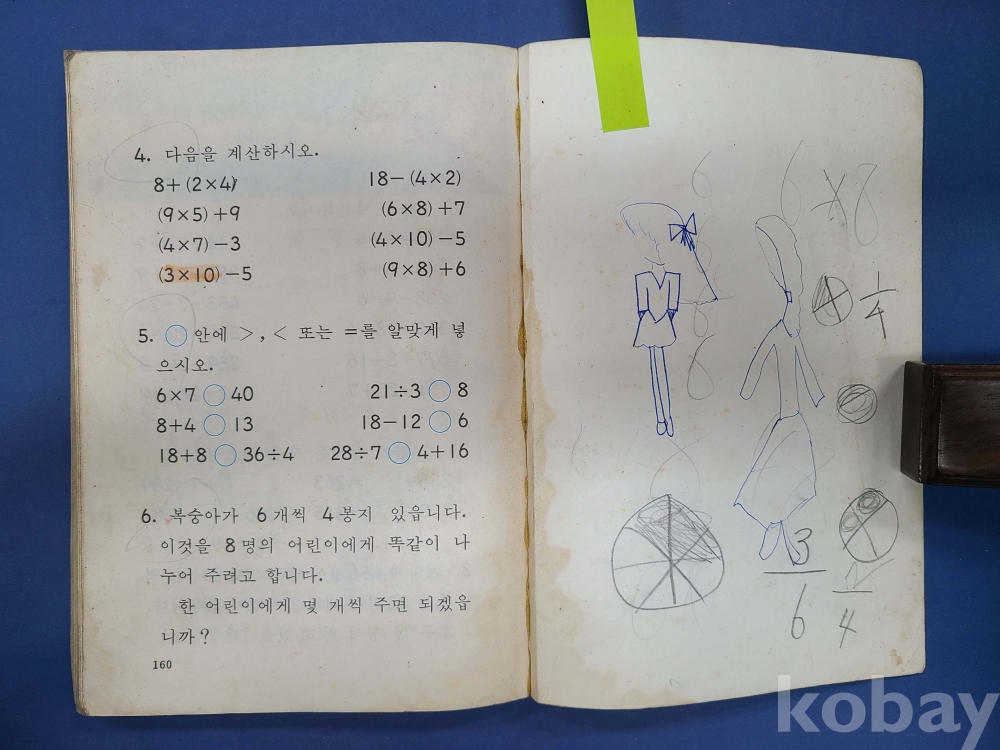 4. 다음을 계산하시오.
8+(2×4) 18-(4×2)
(9×5)+9 (6×8)+7
(4×7)-3 (4×10)-5
(3×10)-5 (9×8)+6
5. ◯ 안에 >, < 또는 =를 알맞게 넣
으시오.
6×7 ◯ 40 21÷3 ◯ 8
8+4 ◯ 13 18-12 ◯ 6
18+8 ◯ 36÷4 28÷7 ◯ 4+16
6. 복숭아가 6개씩 4봉지 있읍니다.
이것을 8명의 어린이에게 똑같이 나
누어 주려고 합니다.
한 어린이에게 몇 개씩 주면 되겠읍
니까?
160
6 6 8
8
1/4
8
3/6
2/4
kobay